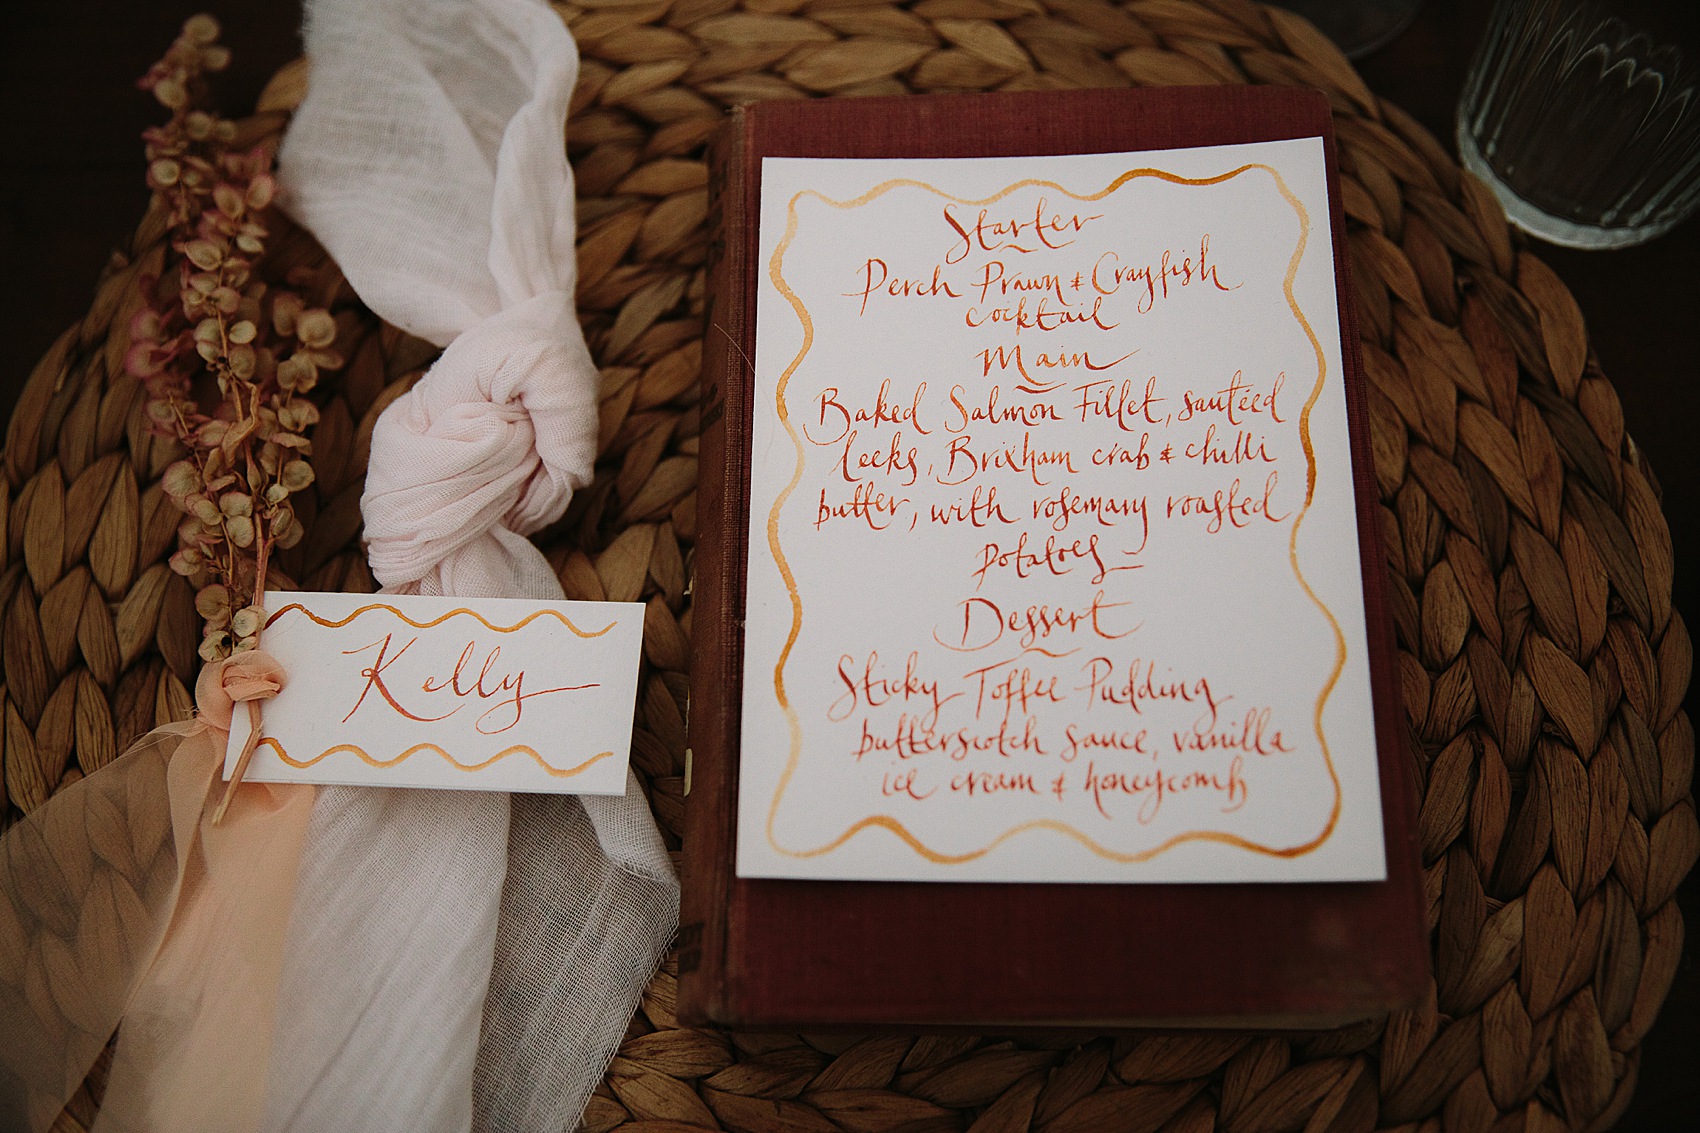 Starter
Perch Prawn & Crayfish
cocktail
Main
Baked Salmon Fillet, sautéed
leeks, Brixham crab & chilli
butter, with rosemary roasted
potatoes
Dessert
Sticky Toffee Pudding
butterscotch sauce, vanilla
ice cream & honeycomb
Kelly